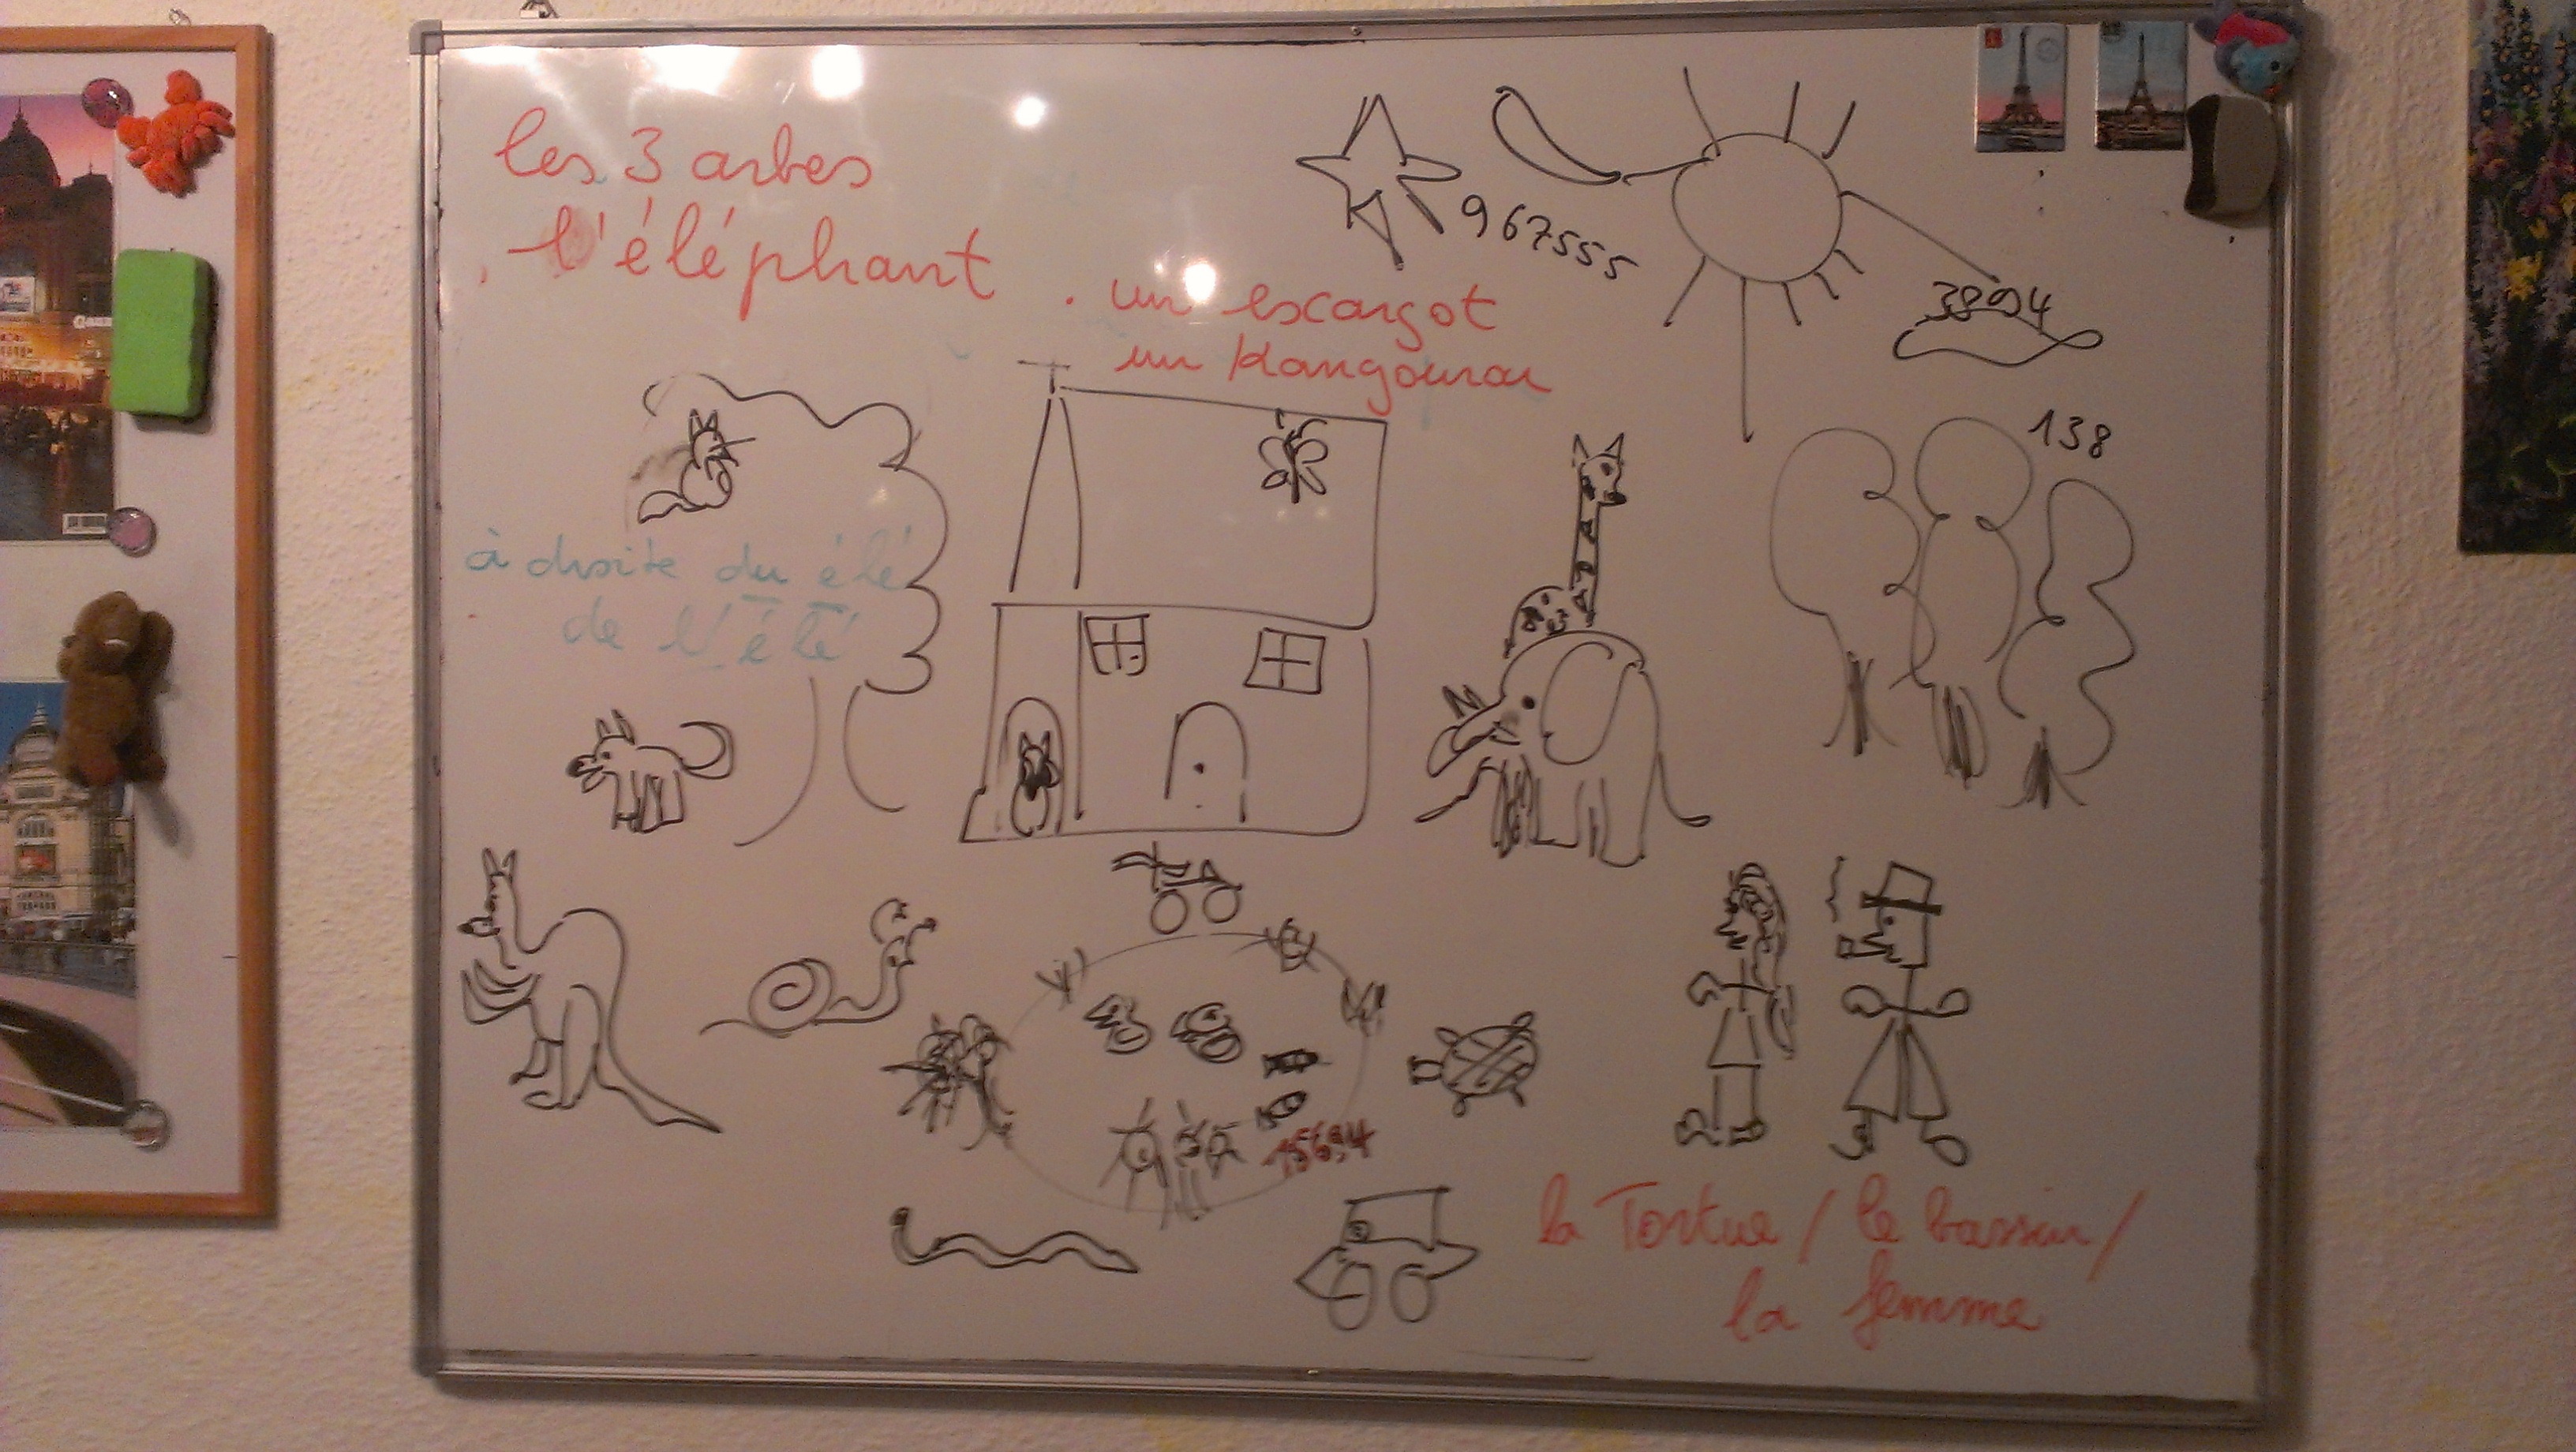 les 3 arbes
l'éléphant
967555
. un escargot
un kangourou
3894
138
à droite du élé
de l'élé
15694
la Tortue / le bassin /
la femme